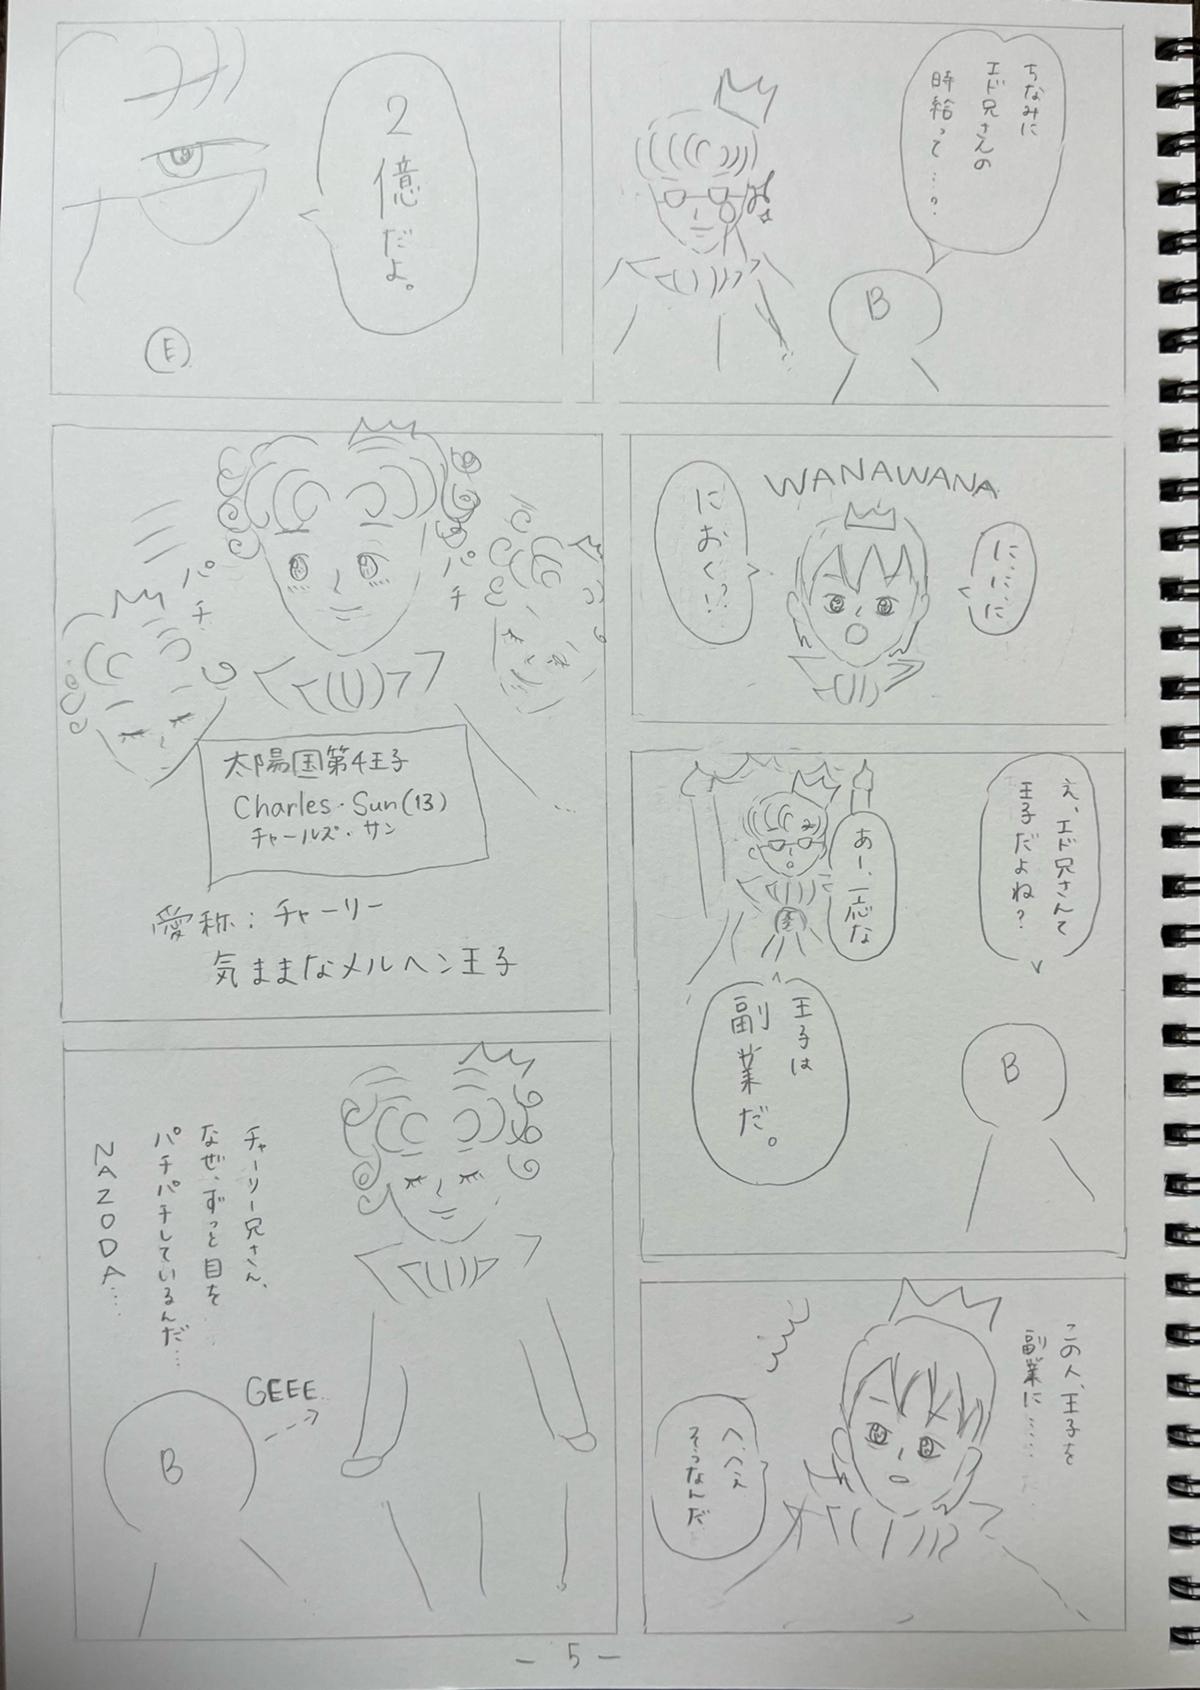 ちなみに
エド兄さんの
時給って…?
B
2億だよ。
E
WANAWANA
に…に…に
におく!?
え、エド兄さんて
王子だよね?
あー、一応な
王子は
副業だ。
B
この人、王子を
副業に……
へ、へぇ
そうなんだ
パチ
パチ
太陽国第4王子
Charles・Sun(13)
チャールズ・サン
愛称:チャーリー
気ままなメルヘン王子
チャーリー兄さん、
なぜ、ずっと目を
パチパチしているんだ…
NAZODA…
GEEE
B
- 5 -